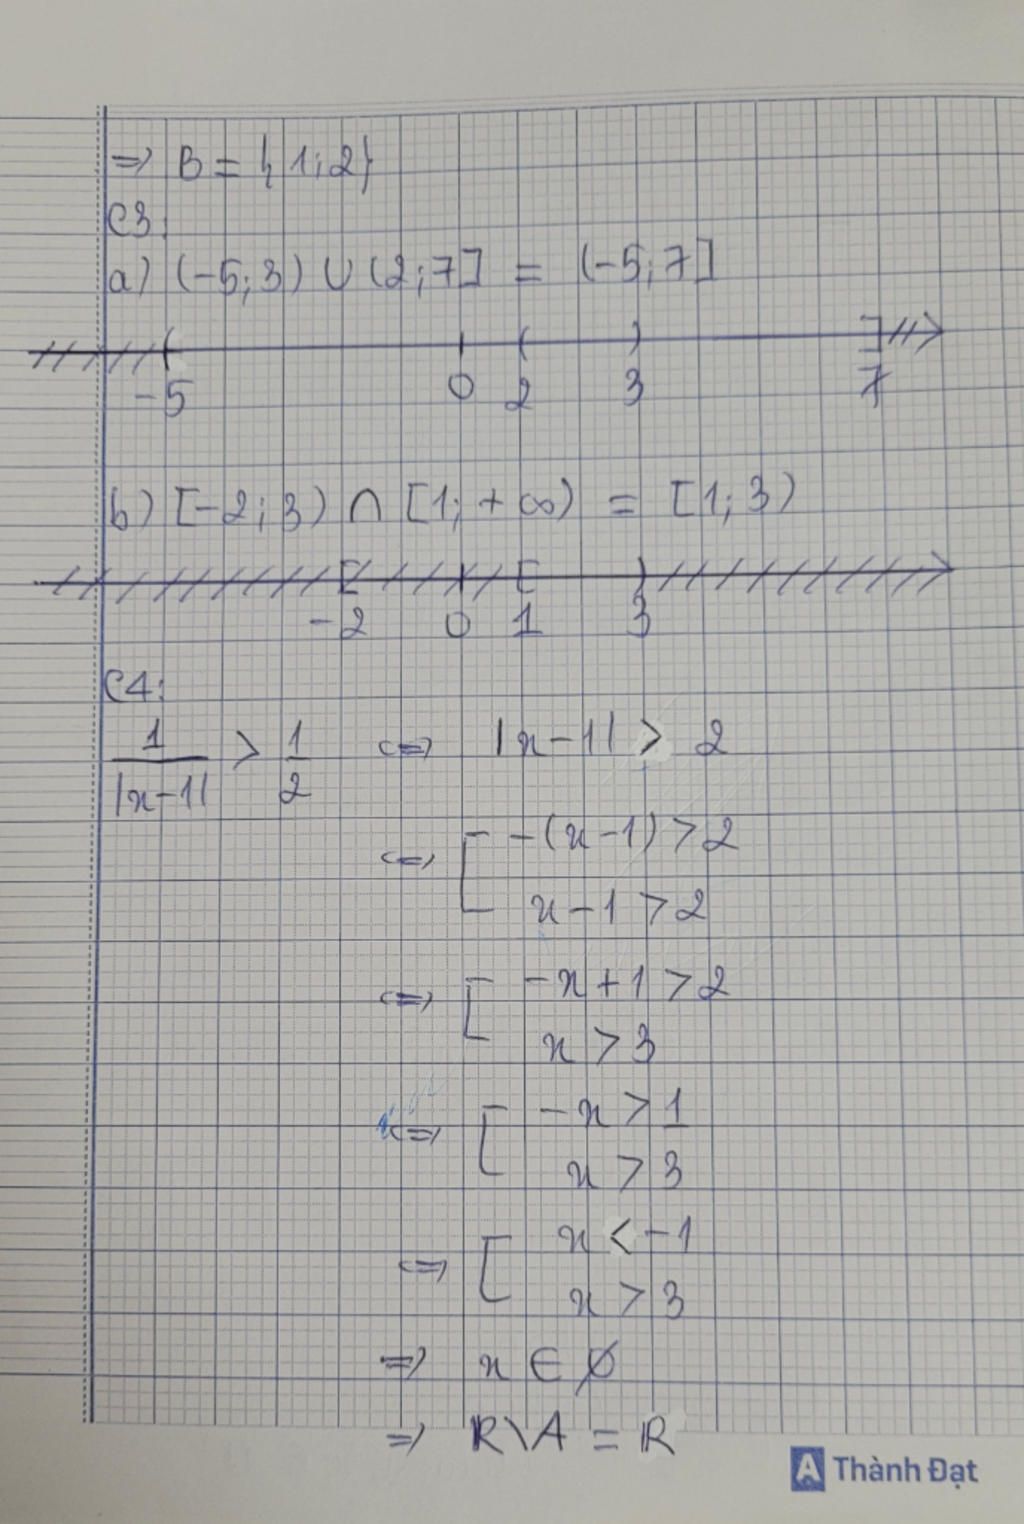 => B = {1;2}
C3:
a) (-5;3) ∪ (2;7] = (-5;7]
-5 0 2 3 7
b) [-2;3) ∩ [1;+∞) = [1;3)
-2 0 1 3
C4:
1/|x-1| > 1/2 <=> |x-1| > 2
<=> [ -(x-1) > 2
x-1 > 2
<=> [ -x+1 > 2
x > 3
<=> [ -x > 1
x > 3
<=> [ x < -1
x > 3
=> x ∈ ∅
=> R\A = R
A Thành Đạt